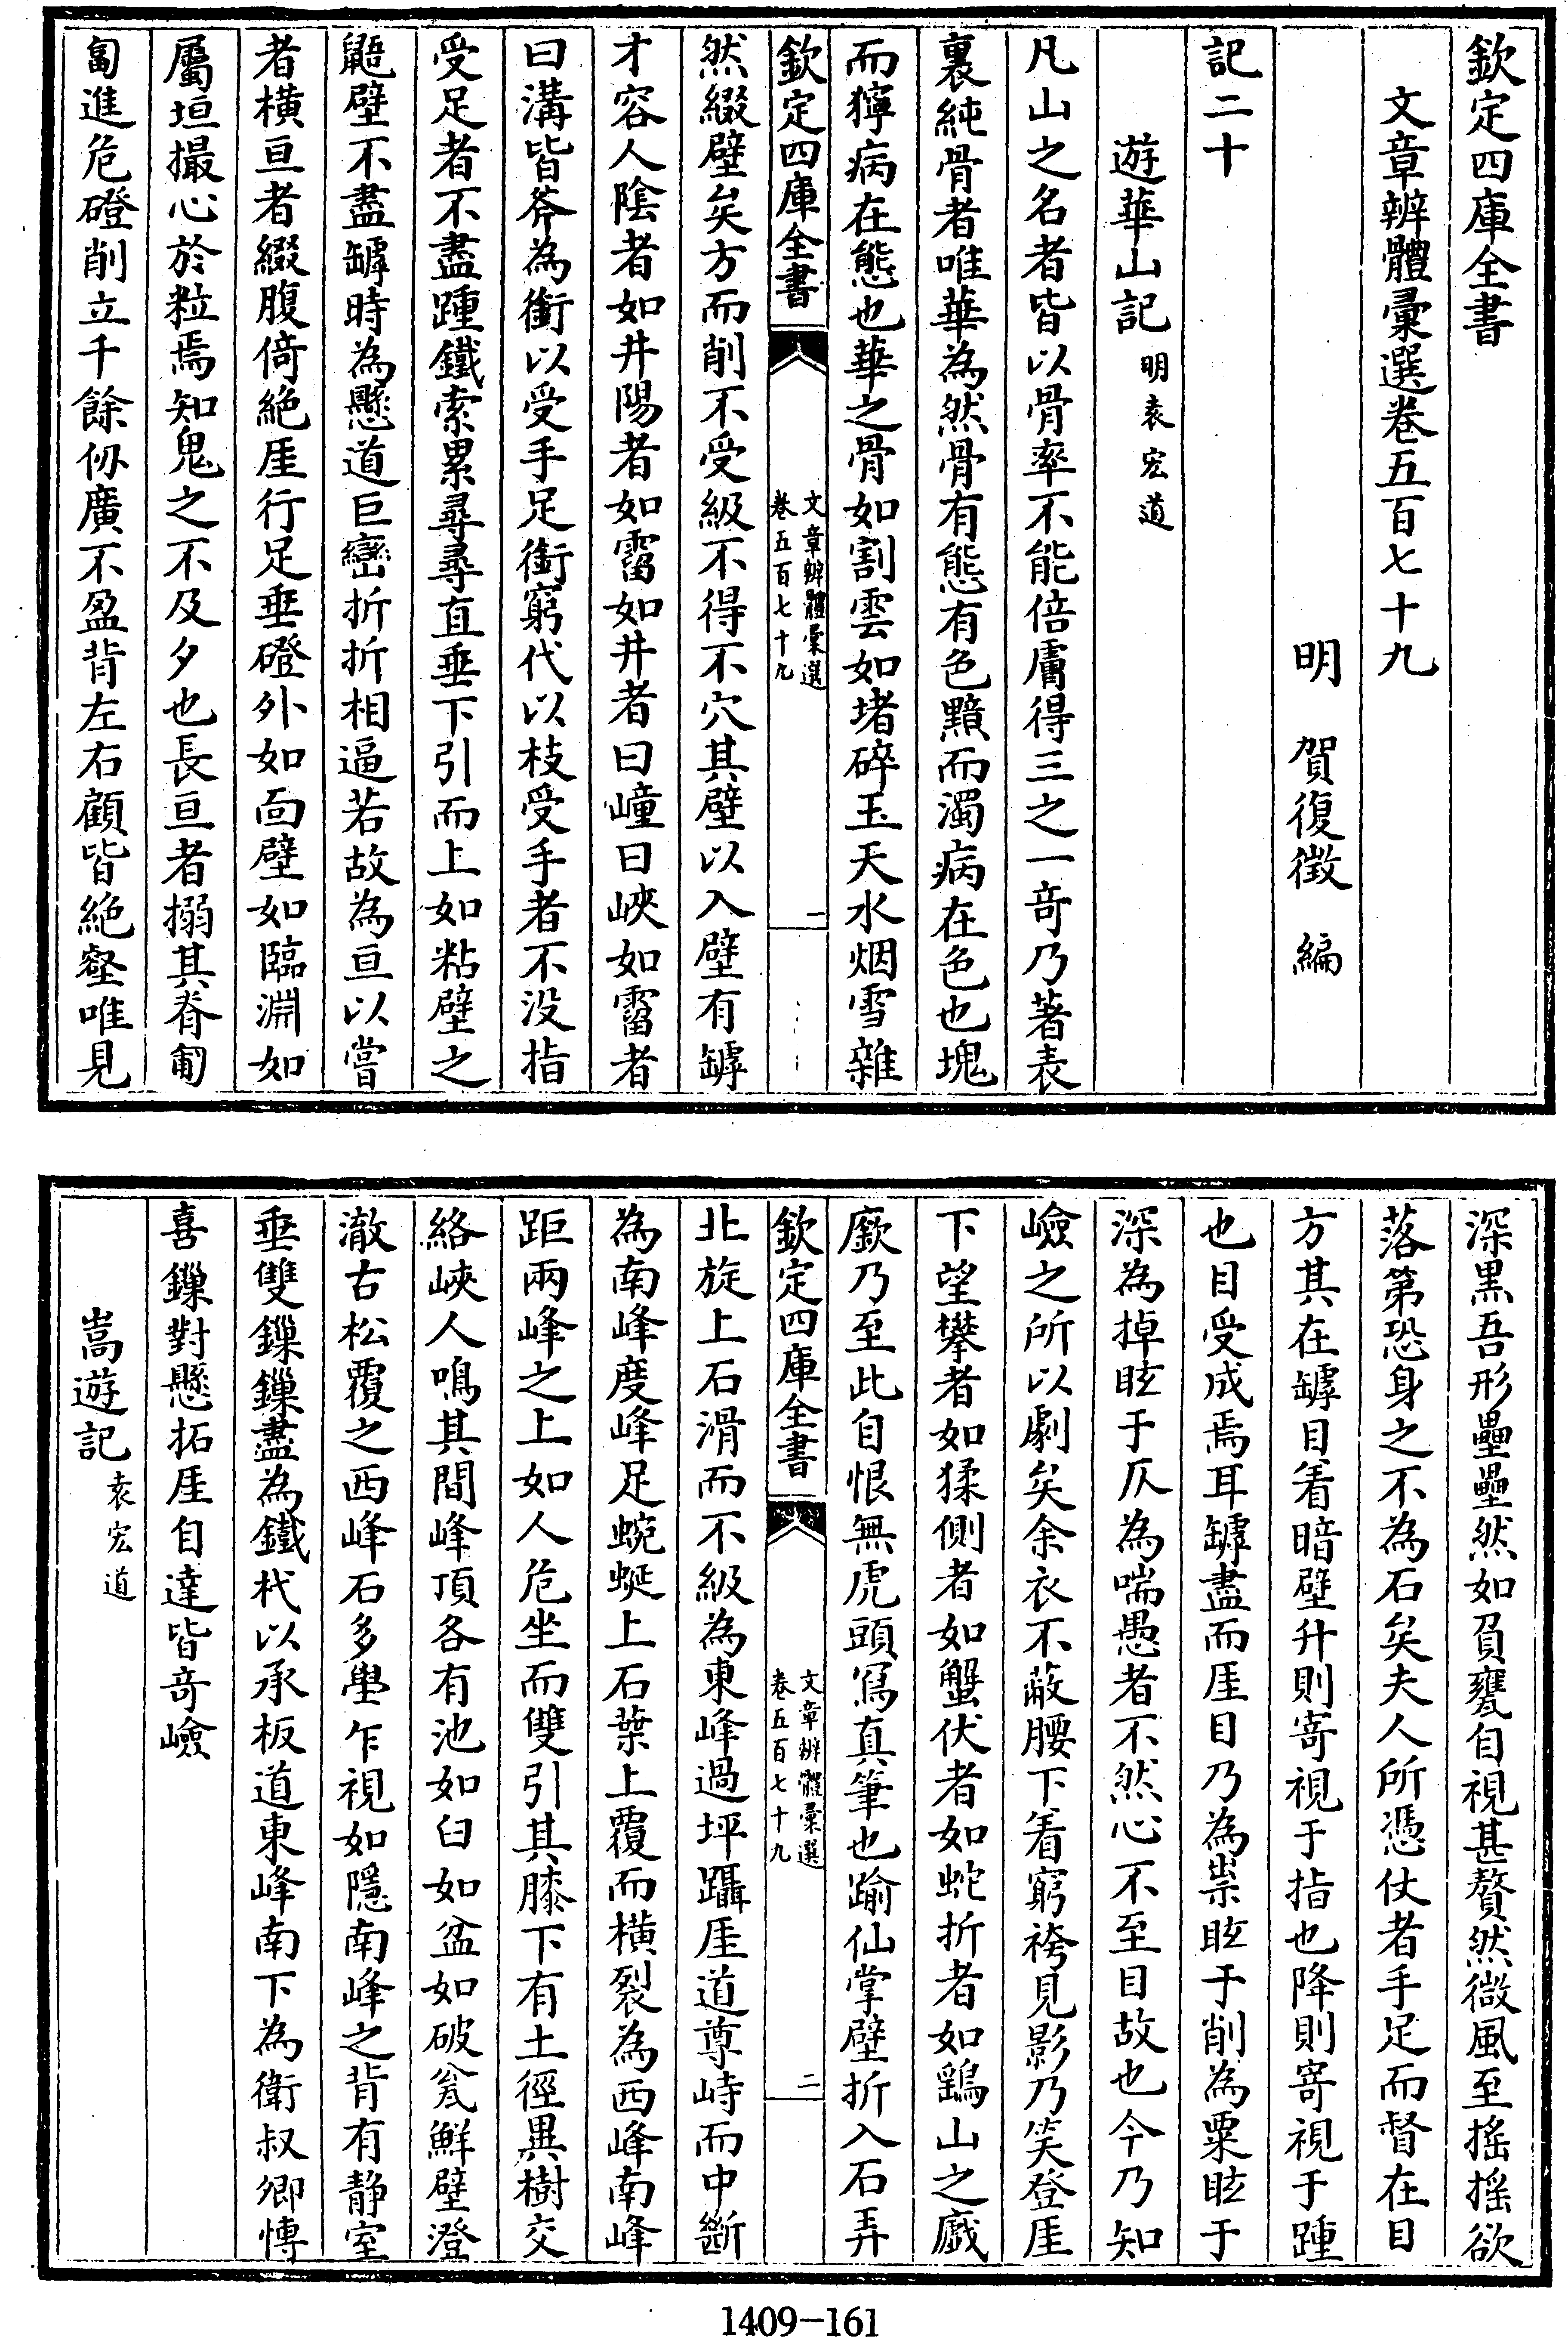 欽定四庫全書
文章辨體彚選卷五百七十九
明 賀復徵 編
記二十
遊華山記 明袁宏道
凡山之名者皆以骨率不能倍膚得三之一竒乃著表
裏純骨者唯華為然骨有態有色黯而濁病在色也塊
而獰病在態也華之骨如割雲如堵碎玉天水烟雪雜
欽定四庫全書
文章辨體彚選
卷五百七十九
一
然綴壁矣方而削不受級不得不穴其壁以入壁有罅
才容人陰者如井陽者如霤如井者曰㠉曰峽如霤者
曰溝皆斧為銜以受手足銜窮代以枝受手者不没指
受足者不盡踵鐵索累尋尋直垂下引而上如粘壁之
鼯壁不盡罅時為懸道巨巒折折相逼若故為亘以嘗
者横亘者綴腹倚絶厓行足垂磴外如面壁如臨淵如
屬垣撮心於粒焉知鬼之不及夕也長亘者搦其脊匍
匐進危磴削立千餘仞廣不盈背左右顧皆絶壑唯見
深黒吾形壘壘然如負甕自視甚贅然微風至摇摇欲
落第恐身之不為石矣夫人所憑仗者手足而督在目
方其在罅目着暗壁升則寄視于指也降則寄視于踵
也目受成焉耳罅盡而厓目乃為祟眩于削為粟眩于
深為掉眩于仄為喘愚者不然心不至目故也今乃知
嶮之所以劇矣余衣不蔽腰下着窮袴見影乃笑登厓
下望攀者如猱側者如蟹伏者如蛇折者如鷂山之戲
厥乃至此自恨無虎頭寫真筆也踰仙掌壁折入石弄
欽定四庫全書
文章辨體彚選
卷五百七十九
二
北旋上石滑而不級為東峰過坪躡厓道尊峙而中斷
為南峰度峰足蜿蜒上石葉上覆而横裂為西峰南峰
距兩峰之上如人危坐而雙引其膝下有土徑異樹交
絡峽人鳴其間峰頂各有池如臼如盆如破瓮鮮壁澄
澈古松覆之西峰石多壆乍視如隱南峰之背有静室
垂雙鏁鏁盡為鐵杙以承板道東峰南下為衛叔卿慱
喜鏁對懸拓厓自達皆竒嶮
嵩遊記 袁宏道
1409-161